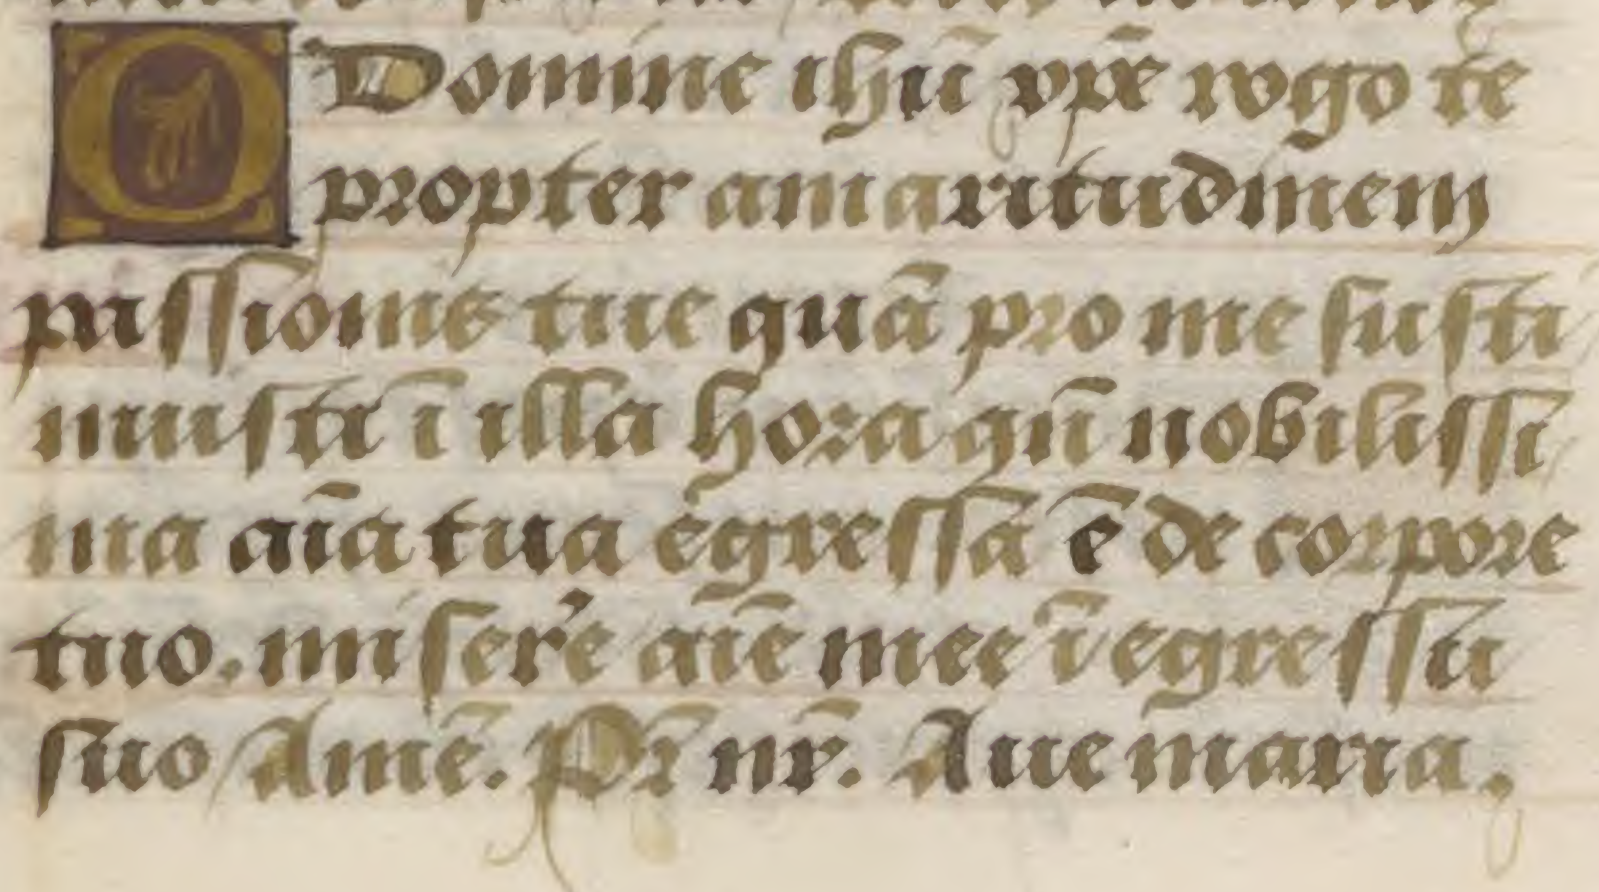 O Domine ihū xp̄e rogo te
propter amaritudinem
passionis tue quā pro me susti
nuisti ī illa hora qn̄ nobilissi
ma aīa tua egressa ē de corpore
tuo. miserere aīe mee ī egressu
suo Amē. Pr̄ nr̄. Aue maria.